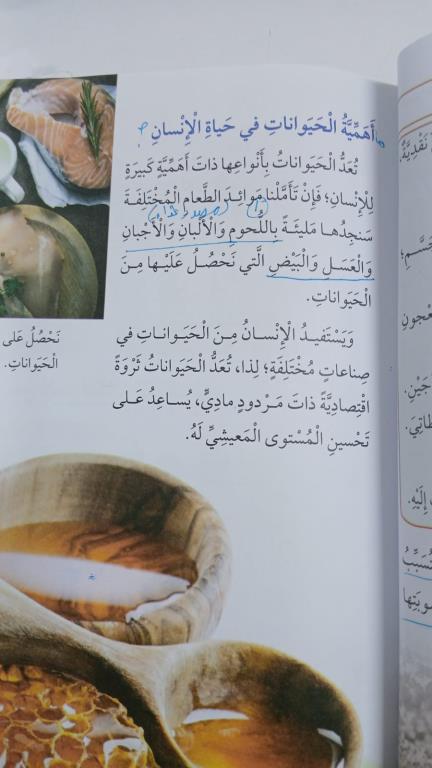 ما أَهَمِّيَّةُ الْحَيَواناتِ في حَياةِ الْإِنْسانِ؟
تُعَدُّ الْحَيَواناتُ بِأَنْواعِها ذاتَ أَهَمِّيَّةٍ كَبيرَةٍ
لِلْإِنْسانِ؛ فَإِنْ تَأَمَّلْنا مَوائِدَ الطَّعامِ الْمُخْتَلِفَةَ
سَنَجِدُهـا مَليئَةً بِاللُّحومِ وَالْأَلْبانِ وَالْأَجْبانِ
وَالْعَسَلِ وَالْبَيْضِ الَّتي نَحْصُلُ عَلَيْهـا مِنَ
الْحَيَواناتِ.
وَيَسْتَفيدُ الْإِنْسانُ مِنَ الْحَيَـوانـاتِ في
صِناعاتٍ مُخْتَلِفَةٍ؛ لِذا، تُعَدُّ الْحَيَواناتُ ثَرْوَةً
اقْتِصادِيَّةً ذاتَ مَـرْدودٍ مادِيٍّ، يُسـاعِدُ عَـلى
تَحْسينِ الْمُسْتَوى الْمَعيشِيِّ لَهُ.
نَحْصُلُ عَلى
الْحَيَواناتِ.